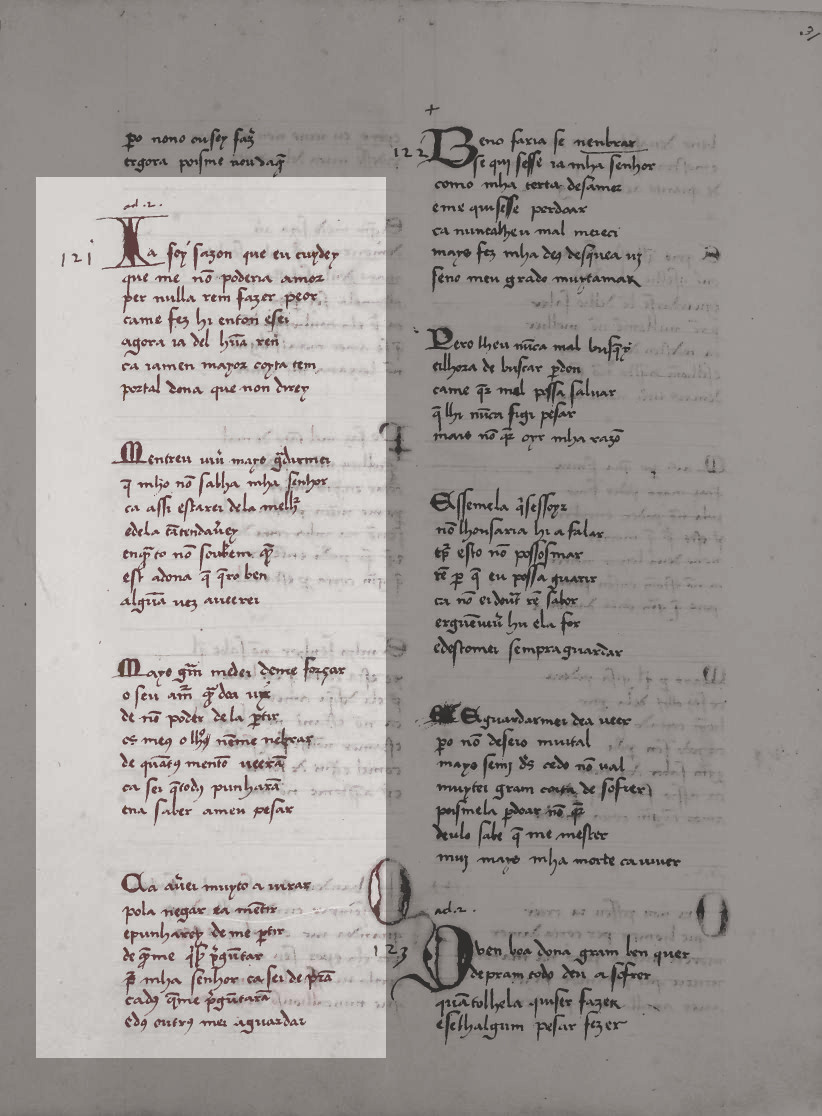 po nono ousey faz̃
ergora poisme noudaq̃
ad .2.
121
Ia foy sazon que eu cuydey
que me nõ poderia amor
per nulla rem fazer peor
came fez hi enton esei
agora ia del hũa ren
ca iamen mayor coyta tem
portal dona que non direy
Mentreu uiũ mays
q̃ mho nõ sabha mha senhor
ca assi estarei dela melh̃
edela
nõ souberem q̃
est adona q̃ q̃ro ben
algũa uez aueerei
Mays gm̃ medei deme forçar
o seu am̃
de nõ poder dela p̃tir
os meus olhos nẽme nẽbrar
de quãtus mentõ ueerã
ca sei q̃todus punharã
ena saber ameu pesar
Ca aũei muyto a
pola negar ea mẽtir
epunharey deme p̃tir
de q̃me p̃gũtar
mha senhor ca sei de p̃rã
cadus q̃me p̃gũtarã
edus outrus mei aguardar
+
122
Beno faria se nenbrar
se qui sesse ia mha senhor
como mha torta desamor
eme quisesse perdoar
ca nuncalheu mal mereci
mays fez mha deus desquea ui
seno meu grado muytamar
Pero lheu nũca mal busq̃y
eilhora de buscar p̃don
came q̃r mal possa saluar
q̃ lhi nũca figi pesar
mais nõ q̃r oyr mha razõ
E ssemela q̃sessoyr
nõ lhousaria hi a falar
esto nõ possosmar
rẽ p q̃ eu possa guarir
ca nõ ei rẽ sabor
hu ela for
edestomei sempraguardar
E guardarmei dea ueer
po nõ deseio muital
mays semi ds̃ cedo nõ ual
muytei gram coita de sofrer
poismela p̃doar nõ q̃r
deulo sabe q̃ me mester
mui mays mha morte ca uiuer
ad.2.
123
Quen boa dona gram ben quer
de pram todo deu a sofrer
quãtolhela quiser fazer
eselhalgum pesar fezer